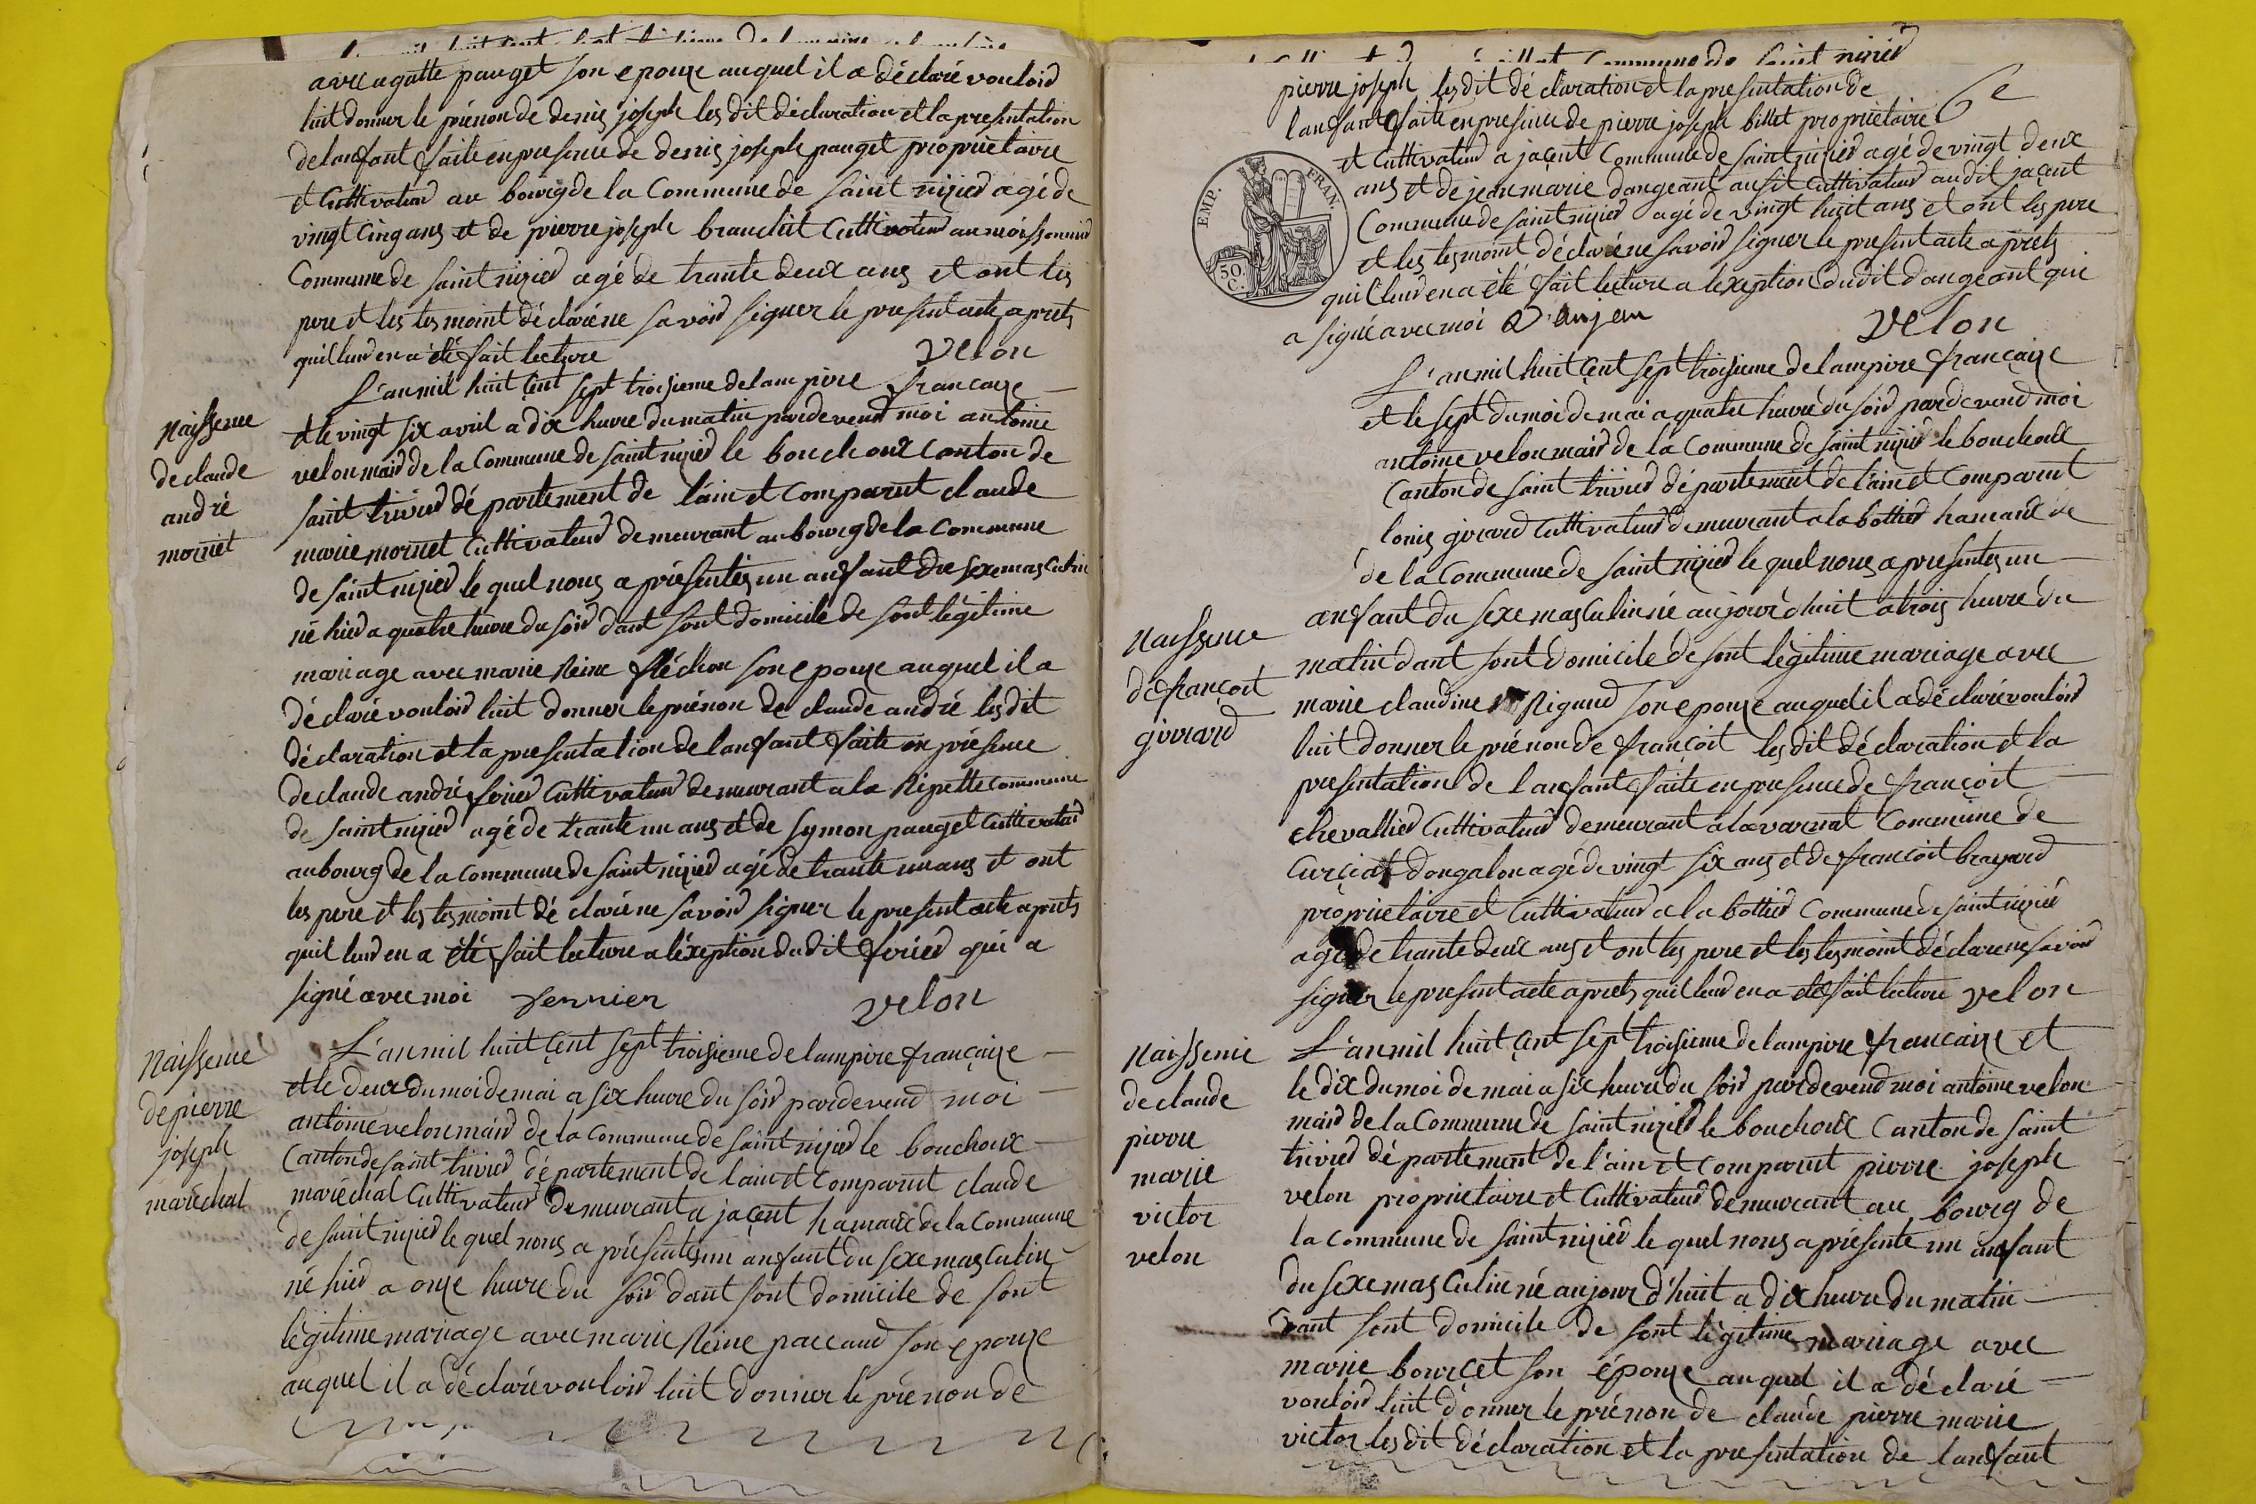 avec agatte pauget son epouze auquel il a déclaré vouloir
luit donner le prénon de denis joseph les dit déclaration et la presentation
de lanfant faite en presence de denis joseph pauget proprietaire
et Cultivateur au bourg de la Commune de saint nizier agé de
vingt cinq ans et de pierre joseph Cultivateur au moissonnier
Commune de saint nizier agé de trante deux ans et ont les
pere et les tesmoint déclaré ne savoir signer le present acte aprets
quil leur en a été fait lecture velon
L'an mil huit çent sept troisieme de lampire francaize
et le vingt six avril a dix heure du matin pardeveud moi antoine
velon mair de la Commune de saint nizier le bouchoux canton de
saint trivier département de l'ain et comparut claude
marie mornet Cultivateur demeurant au bourg de la commune
de saint nizier le quel nous a présentés un anfant du sexe masculin
né hier a quatre heure du soir dant sont domicile de sont légitime
mariage avec marie Reine fléchon son epouze auquel il a
déclaré vouloir luit donner le prénon de claude andré les dit
déclaration et la presentation de lanfant faite en présence
de claude andré ferier Cultivateur demeurant a la Ripette commune
de saint nizier agé de trante un ans et de symon pauget Cultivateur
au bourg de la commune de saint nizier agé de trante un ans et ont
les pere et les tesmoint déclaré ne savoir signer le present acte aprets
quil leur en a été fait lecture a léxeption du dit ferier qui a
signé avec moi ferrier velon
Naissence
de claude
andré
mornet
L'an mil huit çent sept troisieme de lampire françaize
et le deux du moi de mai a six heure du soir pardeveud moi
antoine velon mair de la commune de saint nizier le bouchoux
Canton de saint trivier département de lain et comparut claude
maréchal Cultivateur demeurant a jaçent hamaux de la Commune
de saint nizier le quel nous a présentés un anfant du sexe masculin
né hier a onze heure du soir dant sont domicile de sont
légitime mariage avec marie Reine paccaud son epouze
auquel il a déclaré vouloir luit donner le prénon de
Naissence
de pierre
joseph
maréchal
6e
pierre joseph les dit déclaration et la presentation de
lanfant faite en presence de pierre joseph billet propriétaire
et Cultivateur a jaçent Commune de saint nizier agé de vingt deux
ans et de jean marie dangeant ausit Cultivateur audit jaçent
Commune de saint nizier agé de vingt huit ans et ont les pere
et les tesmoint déclaré ne savoir signer le present acte aprets
quil leur en a été fait lecture a léxeption du dit dangeant qui
a signé avec moi Danjean velon
EMP. FRAN.
50. C.
L'an mil huit çent sept troisieme de lampire françaize
et le sept du moi de mai a quatre heure du soir pardeveud moi
antoine velon mair de la Commune de saint nizier le bouchoux
Canton de saint trivier département de lain et comparut
louis girard Cultivateur demeurant a la bottier hamaux
de la Commune de saint nizier le quel nous a presentés un
anfant du sexe masculin né aujourd'huit a trois heure du
matin dant sont domicile de sont légitime mariage avec
marie claudine Rigaud son epouze auquel il a déclaré vouloir
luit donner le prénon de françoit les dit déclaration et la
presentation de lanfant faite en presence de françoit
chevallier Cultivateur demeurant a la varnat Commune de
Curçiat dongalon agé de vingt six ans et de françoit brayard
proprietaire et Cultivateur a la bottier Commune de saint nizier
agé de trante deux ans et ont les pere et les tesmoint déclaré ne savoir
signer le present acte aprets quil leur en a été fait lecture velon
Naissence
de françoit
girard
L'an mil huit çent sept troisieme de lampire françaize et
le dix du moi de mai a six heure du soir pardeveud moi antoine velon
mair de la Commune de saint nizier le bouchoux Canton de saint
trivier département de l'ain et comparut pierre joseph
velon proprietaire et Cultivateur demeurant au bourg de
la commune de saint nizier le quel nous a présenté un anfant
du sexe masculin né aujourd'huit a dix heure du matin
dant sont domicile de sont légitime mariage avec
marie bourcet son épouze auquel il a déclaré
vouloir luit donner le prénon de claude pierre marie
victor les dit déclaration et la presentation de lanfant
Naissence
de claude
pierre
marie
victor
velon